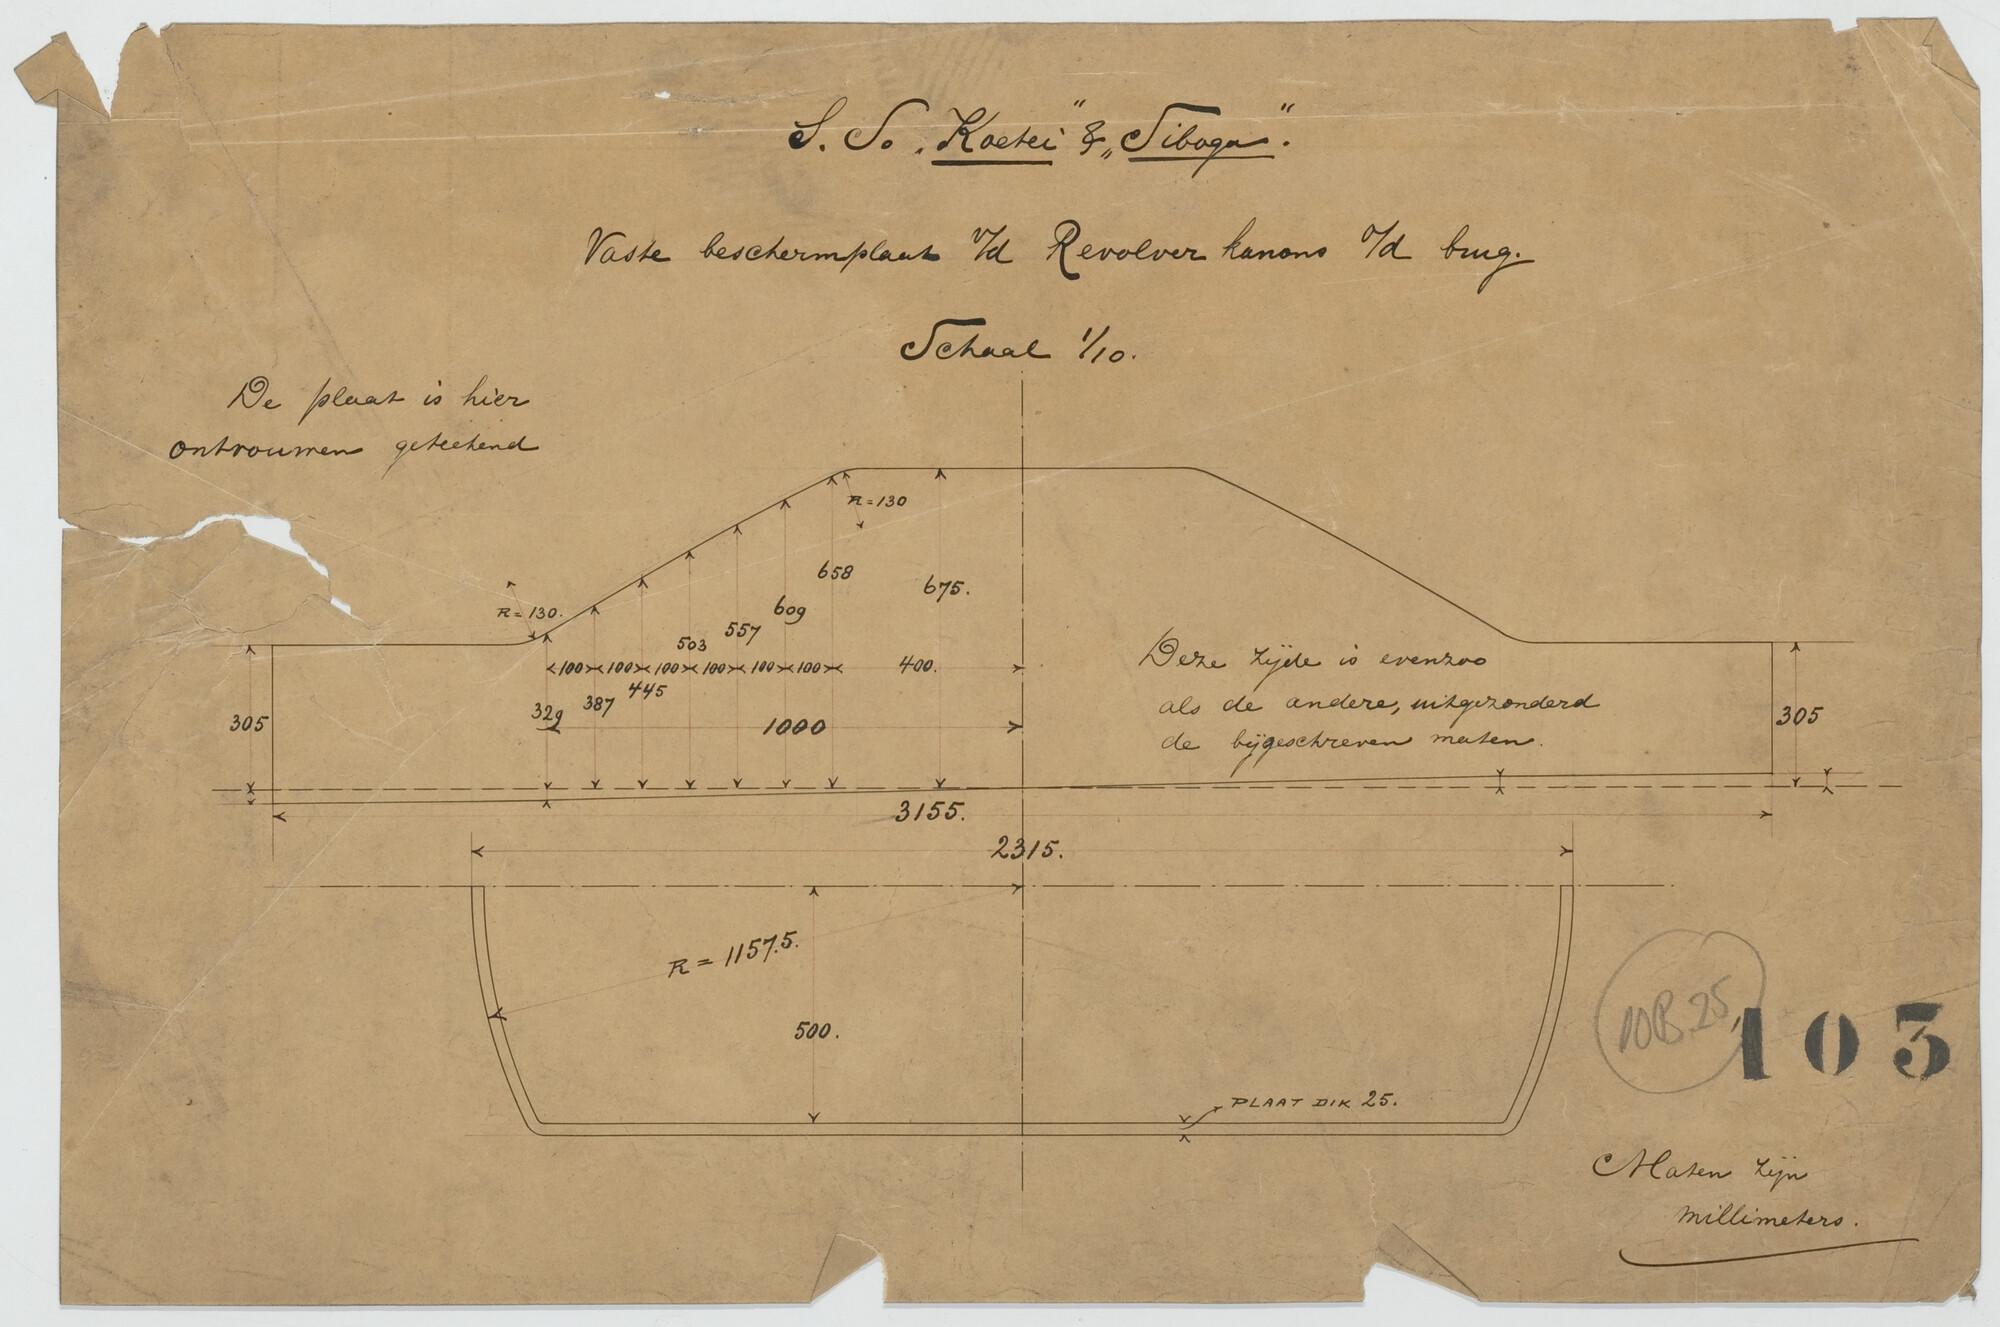 S. S. „Koetei” & „Siboga”.
Vaste beschermplaat v/d Revolver kanons o/d brug.
Schaal 1/10.
De plaat is hier
ontrouwen geteekend
R=130
R=130.
658
675.
609
557
503
100 100 100 100 100 100 400.
445
387
329
305
1000
Deze zijde is evenzoo
als de andere, uitgezonderd
de bijgeschreven maten.
305
3155.
2315.
R = 1157.5.
500.
PLAAT DIK 25.
103
Maten zijn
millimeters.